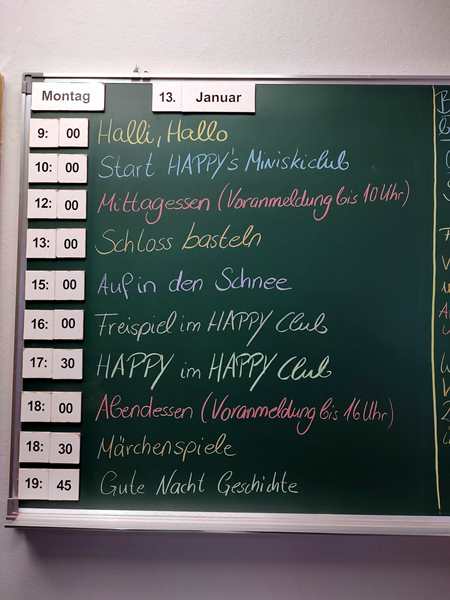 Montag 13. Januar
9: 00 Halli, Hallo
10: 00 Start HAPPY's Miniskiclub
12: 00 Mittagessen (Voranmeldung bis 10 Uhr)
13: 00 Schloss basteln
15: 00 Auf in den Schnee
16: 00 Freispiel im HAPPY Club
17: 30 HAPPY im HAPPY Club
18: 00 Abendessen (Voranmeldung bis 16 Uhr)
18: 30 Märchenspiele
19: 45 Gute Nacht Geschichte